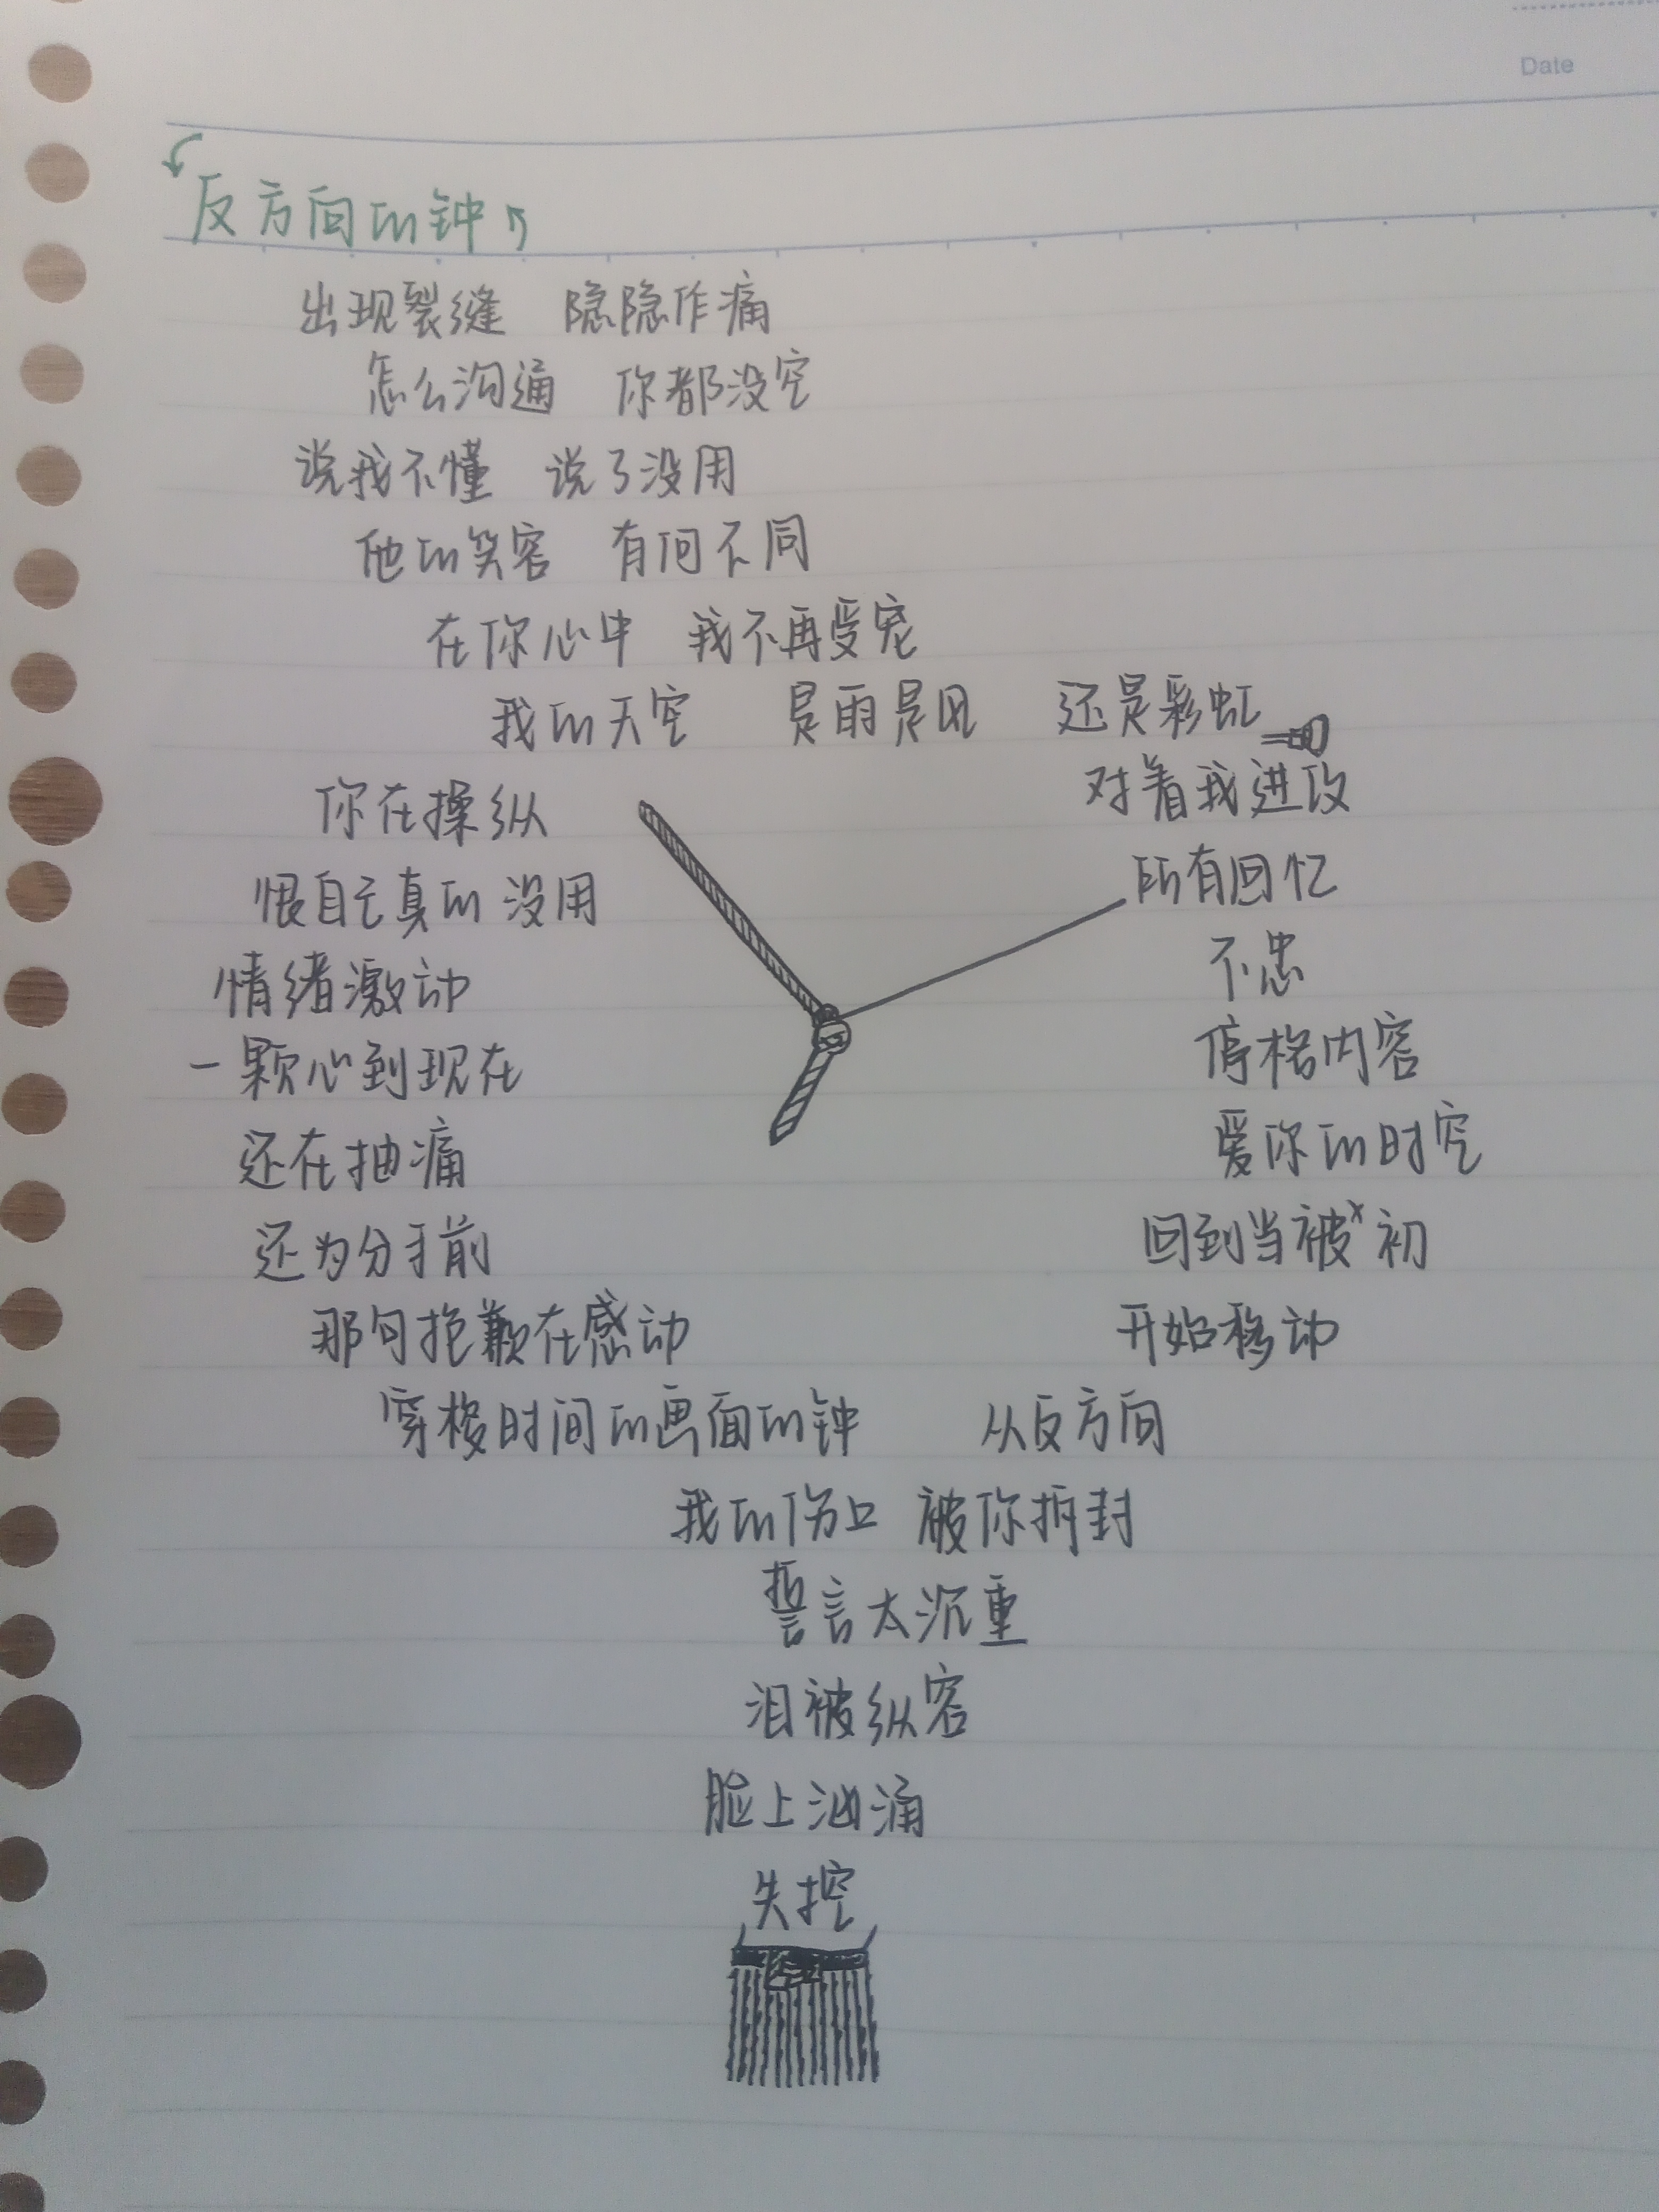 Date
反方向的钟
出现裂缝 隐隐作痛
怎么沟通 你都没空
说我不懂 说了没用
他的笑容 有何不同
在你心中 我不再受宠
我的天空 是雨是风 还是彩虹
你在操纵
对着我进攻
恨自己真的没用
所有回忆
情绪激动
不忠
一颗心到现在
停格内容
还在抽痛
爱你的时空
还为分手前
回到当被初
那句抱歉在感动
开始移动
穿梭时间的画面的钟 从反方向
我的伤口 被你拆封
誓言太沉重
泪被纵容
脸上汹涌
失控